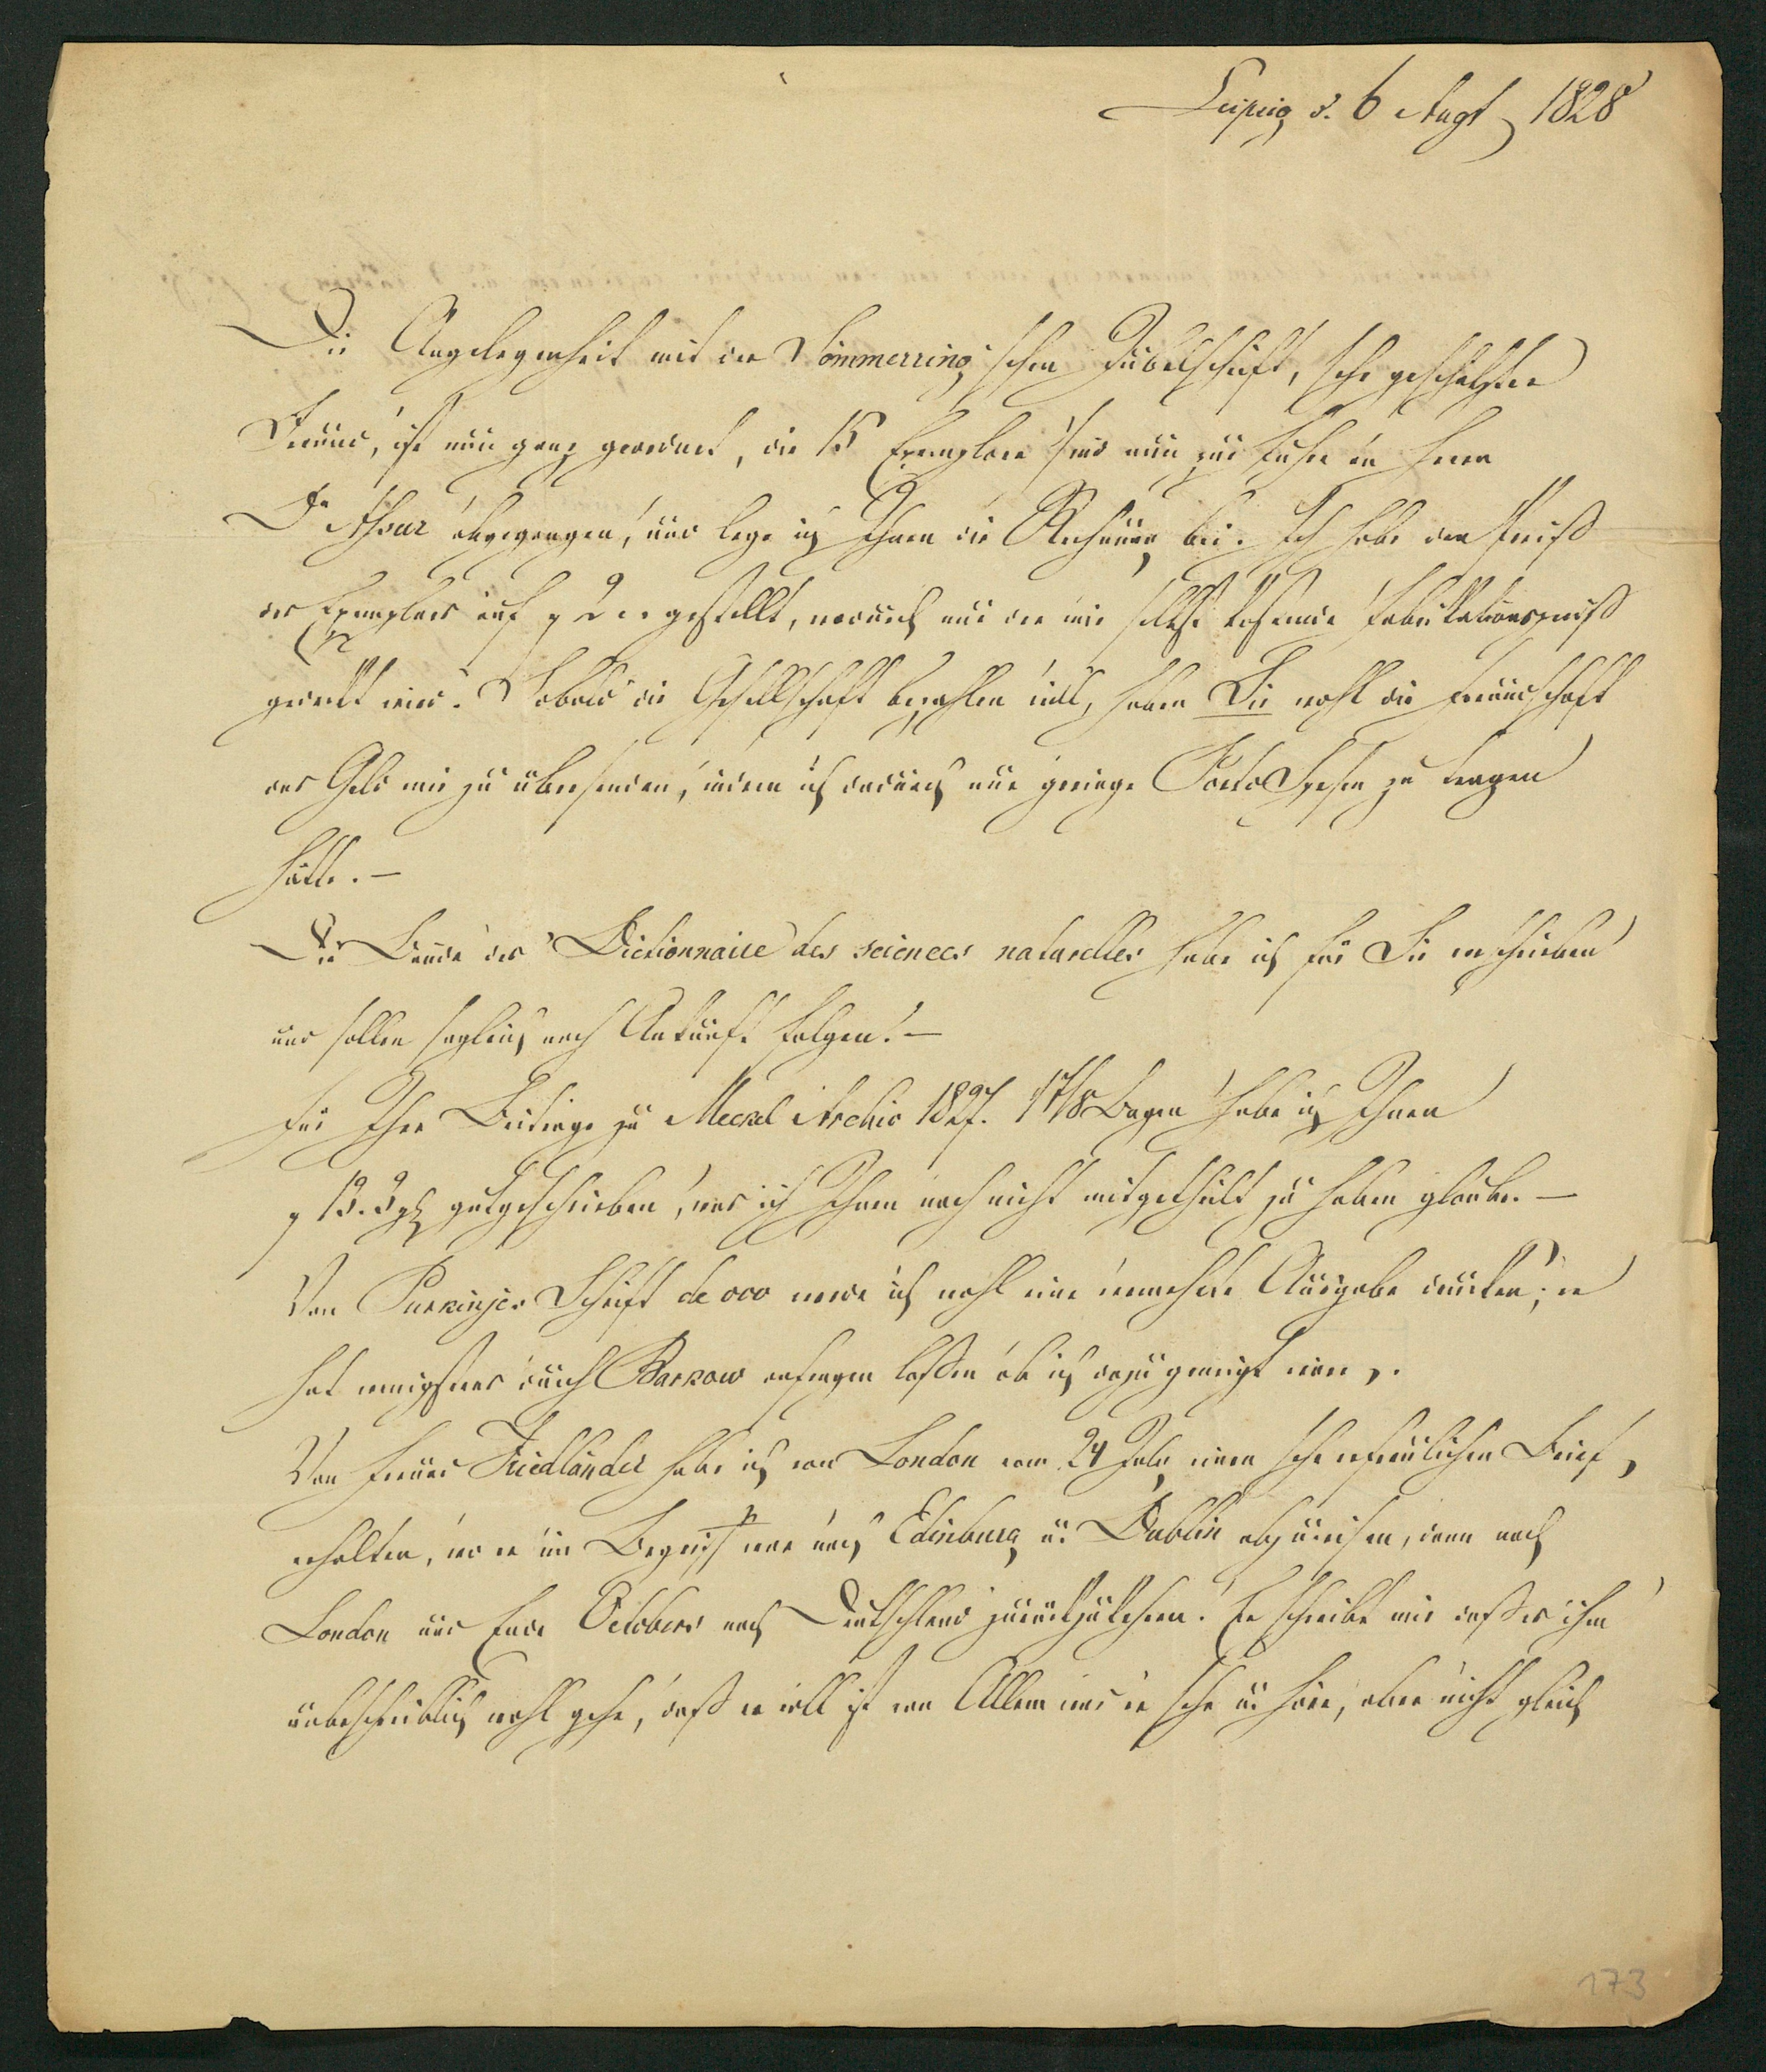 Leipzig d. 6 Augt 1828
Die Angelegenheit mit der Sömmerring'schen Jubelschrift, sehr geschätzter
Freund, ist nun ganz geordnet, die 15 Exemplare sind nun zur Fuhre an Herrn
Dr abgegangen, und lege ich Ihnen die Rechnung bei. Ich habe den Preiß
des Exemplars auf gestellt, wodurch nur der mir selbst kostende Fabrikationspreiß
gedeckt wird. Sobald die Gesellschaft bezahlen will, haben Sie wohl die Freundschaft
das Geld mir zu übersenden, indem ich dadurch nur geringe Porto Spesen zu tragen
hätte. –
Die Bände des Dictionnaire des sciences naturelles habe ich für Sie verschrieben
und sollen sogleich nach Ankunft folgen. –
Für Ihre Beiträge zu Meckel Archiv 1827. 1 7/8 Bogen habe ich Ihnen
gutgeschrieben, was ich Ihnen noch nicht mitgetheilt zu haben glaube. –
Von Purkinjes Schrift de ovo werde ich wohl eine vermehrte Ausgabe drucken; er
hat wenigstens durch Barkow anfragen laßen ob ich dazu geneigt wäre.
Von Freund Friedländer habe ich von London vom 24 July einen sehr erfreulichen Brief,
erhalten, wo er im Begriff war nach Edinburg u. Dublin abzureisen, dann nach
London und Ende Octobers nach Deutschland zurückzukehren. Er schreibt mir daß es ihm
unbeschreiblich wohl gehe, daß er voll ist von Allem was er sehe u. höre, aber nicht gleich
173